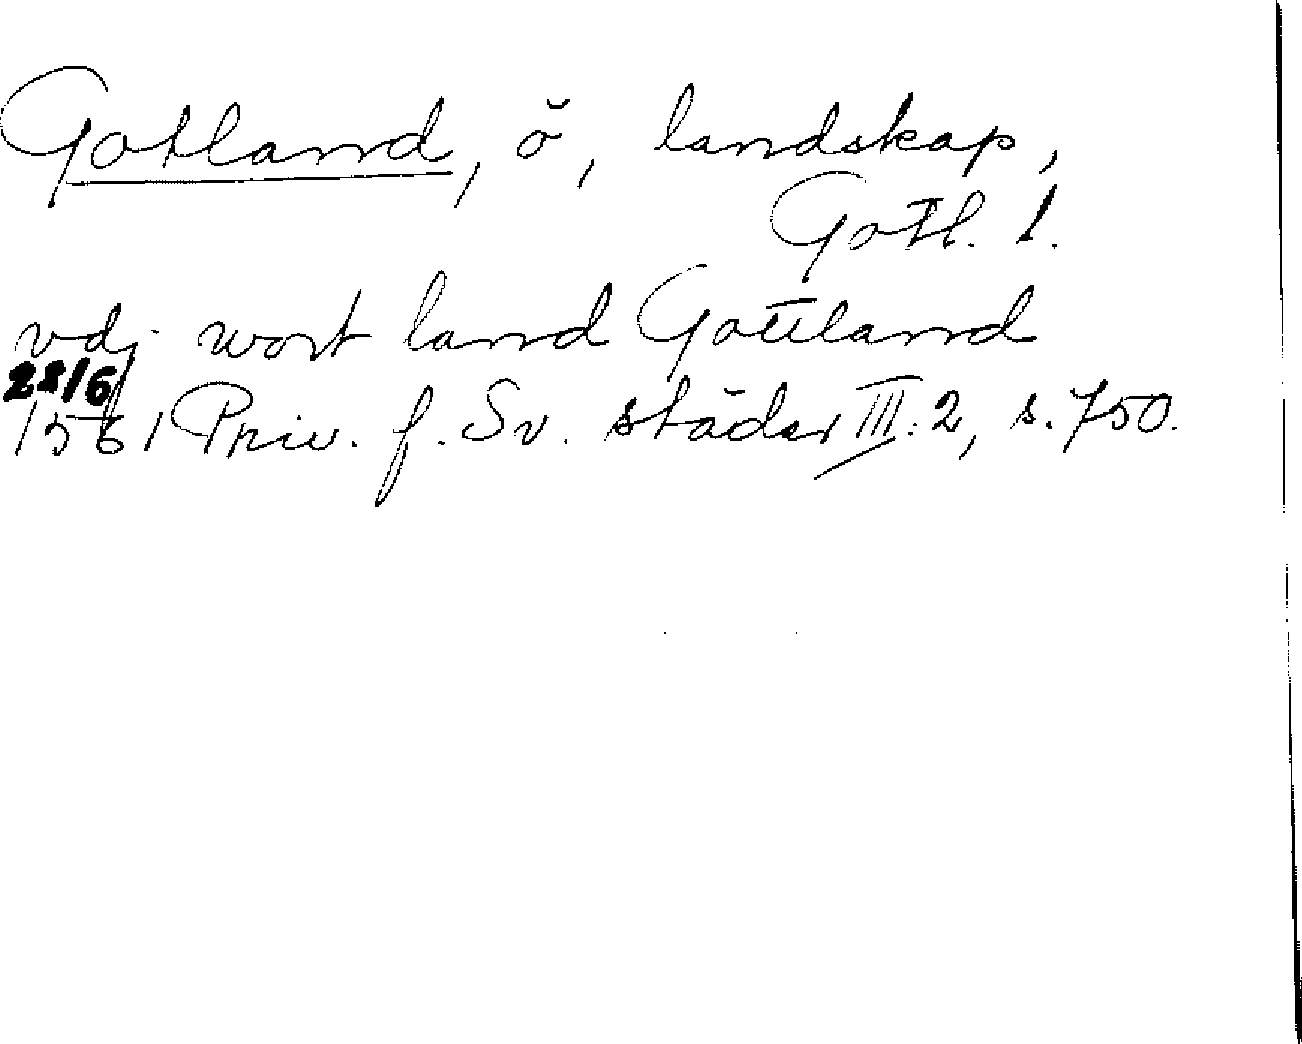 Gotland, ö, landskap,
Gotl. l.
vdj wort land Gottland
28/6
1561 Priv. f. Sv. städer III:2, s. 750.